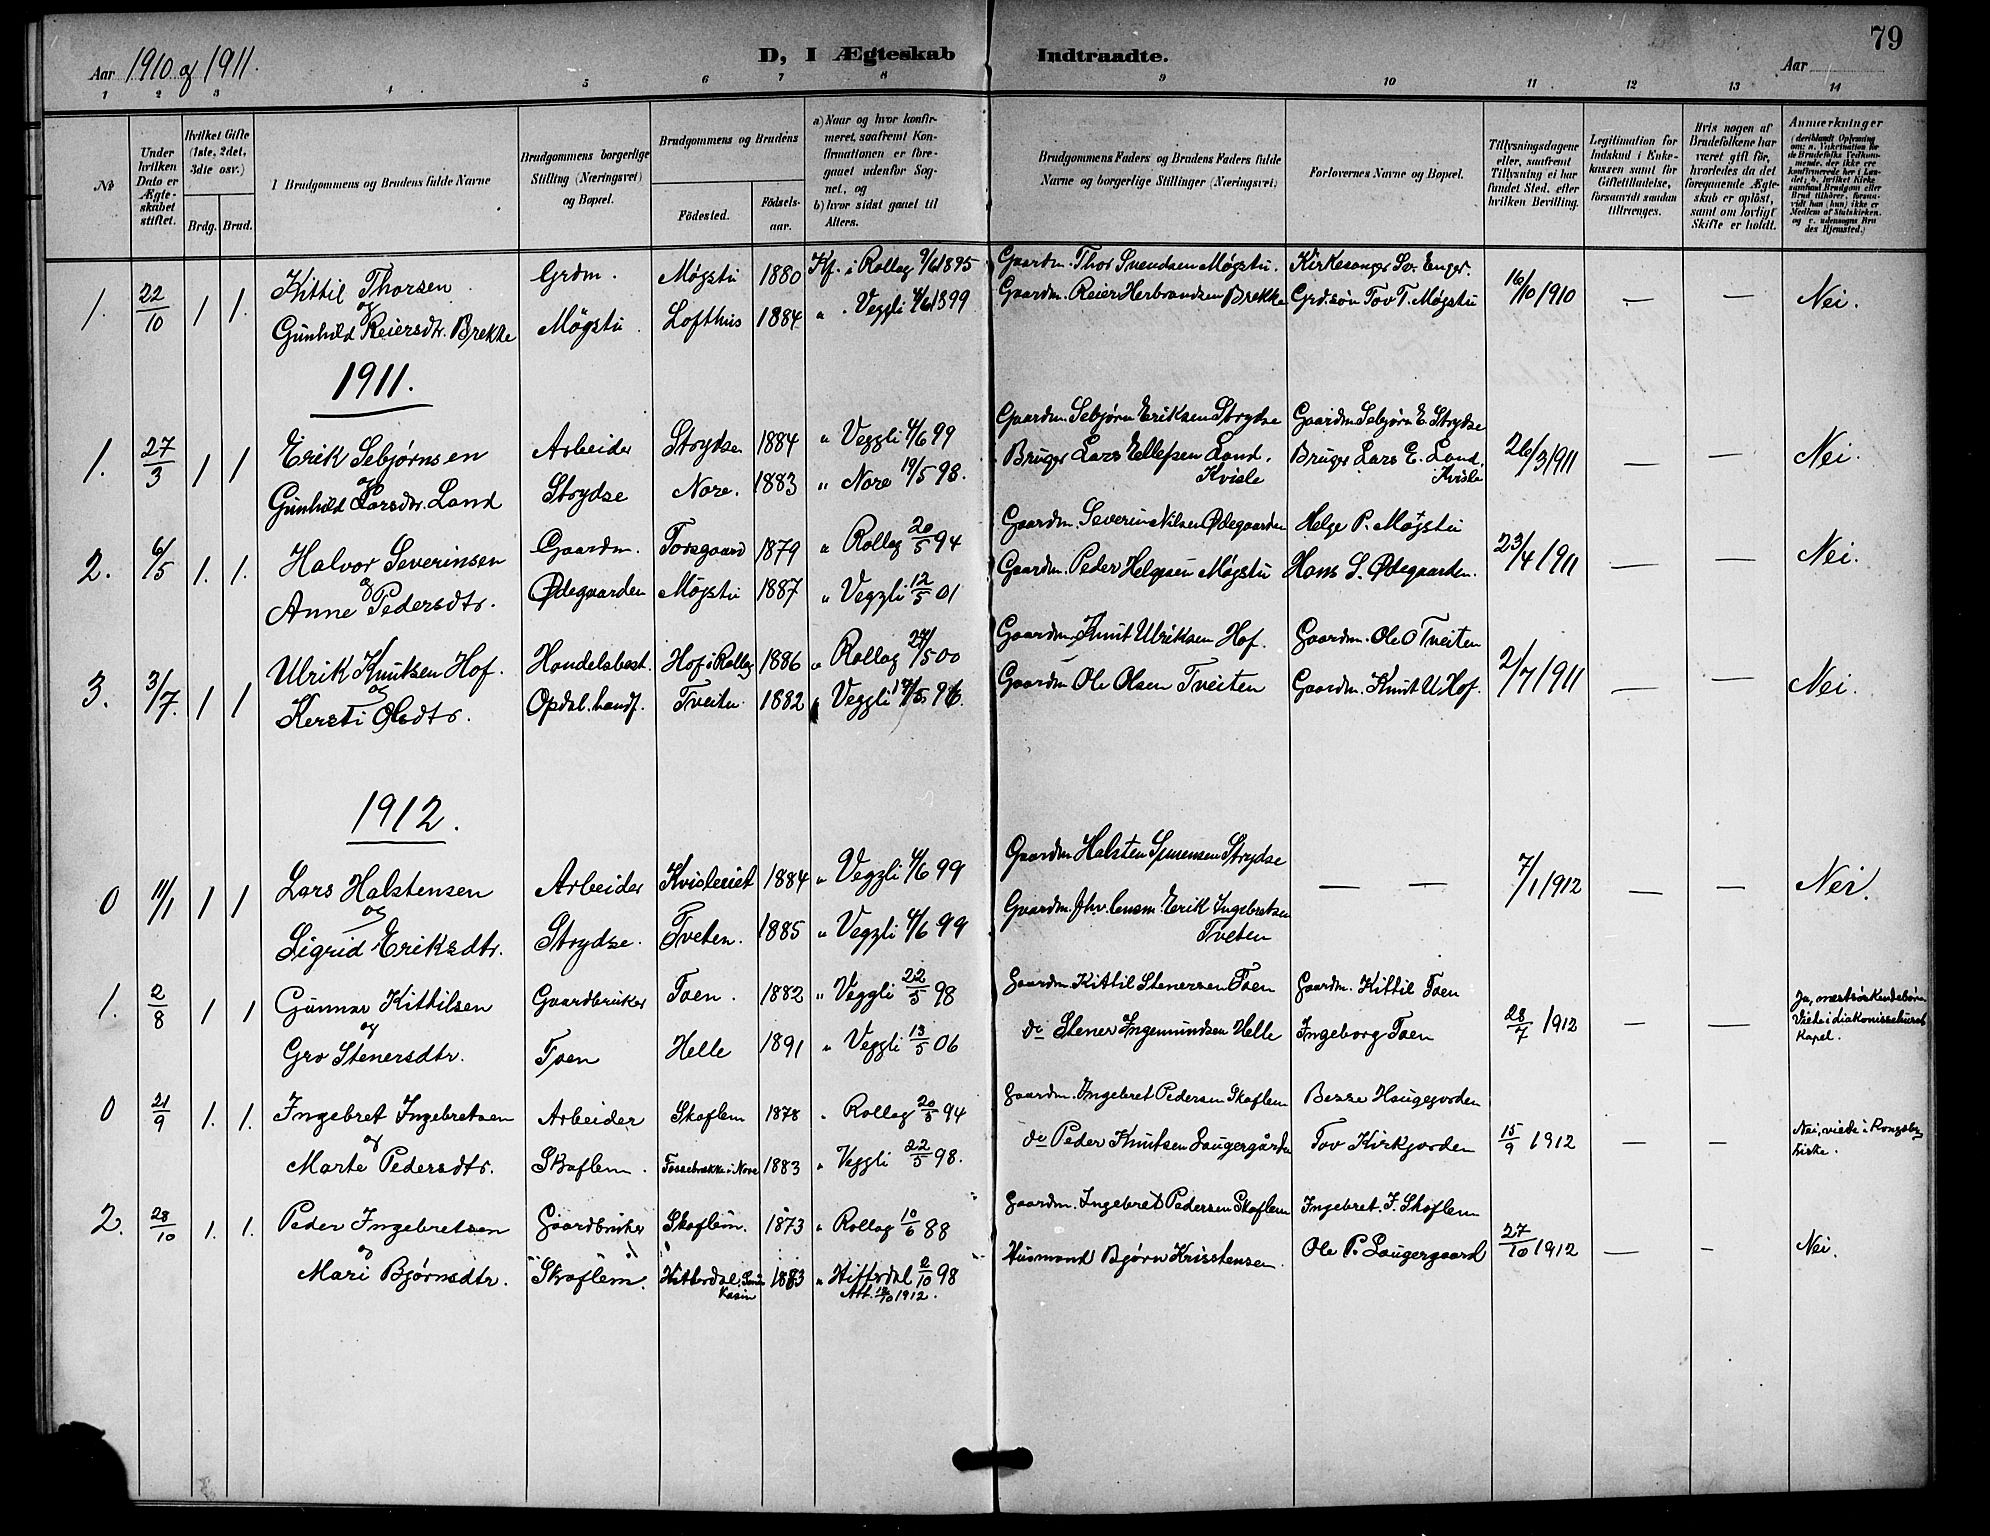 Aar 1910 og 1911.
D, I Ægteskab Indtraadte.
79
Aar
1 2 3 4 5 6 7 8 9 10 11 12 13 14
No
Under hvilken Dato er Ægteskabet stiftet.
Hvilket Gifte (1ste, 2det, 3die osv.)
Brdg. Brud.
Brudgommens og Brudens fulde Navne
Brudgommens borgerlige Stilling (Næringsvei) og Bopæl.
Brudgommens og Brudens
Födested.
Födselsaar.
a) Naar og hvor konfirmeret, saafremt Konfirmationen er foregaaet udenfor Sognet, og
b) hvor sidst gaaet til Alters.
Brudgommens Faders og Brudens Faders fulde Navne og borgerlige Stillinger (Næringsvei)
Forlovernes Navne og Bopæl.
Tillysningsdagene eller, saafremt Tillysning ei har fundet Sted, efter hvilken Bevilling.
Legitimation for Indskud i Enkekassen samt for Giftetilladelse, forsaavidt saadan tiltrænges.
Hvis nogen af Brudefolkene har været gift för, hvorledes da det foregaaende Ægteskab er oplöst, samt om lovligt Skifte er holdt.
Anmærkninger
1. 22/10 1 1. Kittil Thorsen Grdm. Møgstu 1880 Kf. i Rollag 9/6 1895 Gaardm. Thor Svendsen Møgstu. Kirkesanger Sv. Enger. 16/10 1910 — — Nei.
og
Gunhild Reiersdtr. Brekke Møgstu Lofthus 1884 " Veggli 4/6 1899 Gaardm. Reier Herbrandsen Brekke Grd.søn Tov T. Møgstu
1911.
1. 27/3 1 1 Erik Sebjørnsen Arbeider Strydse 1884 " Veggli 4/6 99 Gaardm Sebjørn Eriksen Strydse Gaardm Sebjørn E. Strydse 26/3 1911 — — Nei.
og
Gunhild Larsdtr. Land Strydse Nore. 1883 " Nore 19/5 98. Bruger Lars Ellefsen Land. Kvisle Bruger Lars E. Land. Kvisle
2. 6/5 1. 1. Halvor Severinsen Gaardm. Torsgaard 1879 " Rollag 20/5 94 Gaardm. Severin Nilsen Ødegaarden Helge P. Møgstu 23/4 1911 — — Nei.
og
Anne Pedersdtr. Ødegaarden Møgstu 1887 " Veggli 12/5 01 Gaardm. Peder Helgesen Møgstu Hans S. Ødegaarden.
3. 3/7. 1 1 Ulrik Knutsen Hof. Handelsbest. Hof i Rollag 1886 " Rollag 27/5 00 Gaardm. Knut Ulriksen Hof. Gaardm. Ole O Tveiten 2/7 1911 — — Nei.
og
Kersti Olsdtr. Opdal. handf. Tveitn 1882 " Veggli 17/5 96. Gaardm Ole Olsen Tveiten Gaardm. Knut U. Hof.
1912.
0 11/1 1 1 Lars Halstensen Arbeider Kvisleeiet 1884 " Veggli 4/6 99 Gaardm Halsten Simensen Strydse — — 7/1 1912 — — Nei.
og
Sigrid Eriksdtr. Strydse. Tveten. 1885 " Veggli 4/6 99 Gaardm. fhv. lensm. Erik Ingebretsen Tveten
1. 2/8 1 1 Gunnar Kittilsen Gaardbruker Toen. 1882 " Veggli 22/5 98 Gaardm. Kittil Stenersen Toen Gaardm. Kittil Toen 28/7 1912 — — Ja, næstsøskendebørn. Viete i diakonissehusets kapel.
og
Gro Stenersdtr. Toen Helle 1891 " Veggli 13/5 06 do Stener Ingemundsen Helle Ingeborg Toen
0 21/9 1. 1. Ingebret Ingebretsen Arbeider Skoflem 1878 " Rollag 20/5 94 Gaardm. Ingebret Pedersen Skoflem Besse Haugejorden 15/9 1912 — — Nei, viede i Kongsbg kirke.
og
Marte Pedersdtr. Skoflem. Fossebrekke i Nore 1883 " Veggli 22/5 98. do Peder Knutsen Laugergården Tov Kirkjorden
2. 28/10 1. 1. Peder Ingebretsen Gaardbruker Skoflem. 1873 " Rollag 10/6 88 Gaardm. Ingebret Pedersen Skoflem Ingebret. I. Skoflem 27/10 1912 — — Nei.
og
Mari Bjørnsdtr. Skoflem. Hitterdal, 1883 " Hitterdal 2/10 98 Att. 12/10 1912. Husmand Bjørn Kristensen. Ole P. Laugergaard